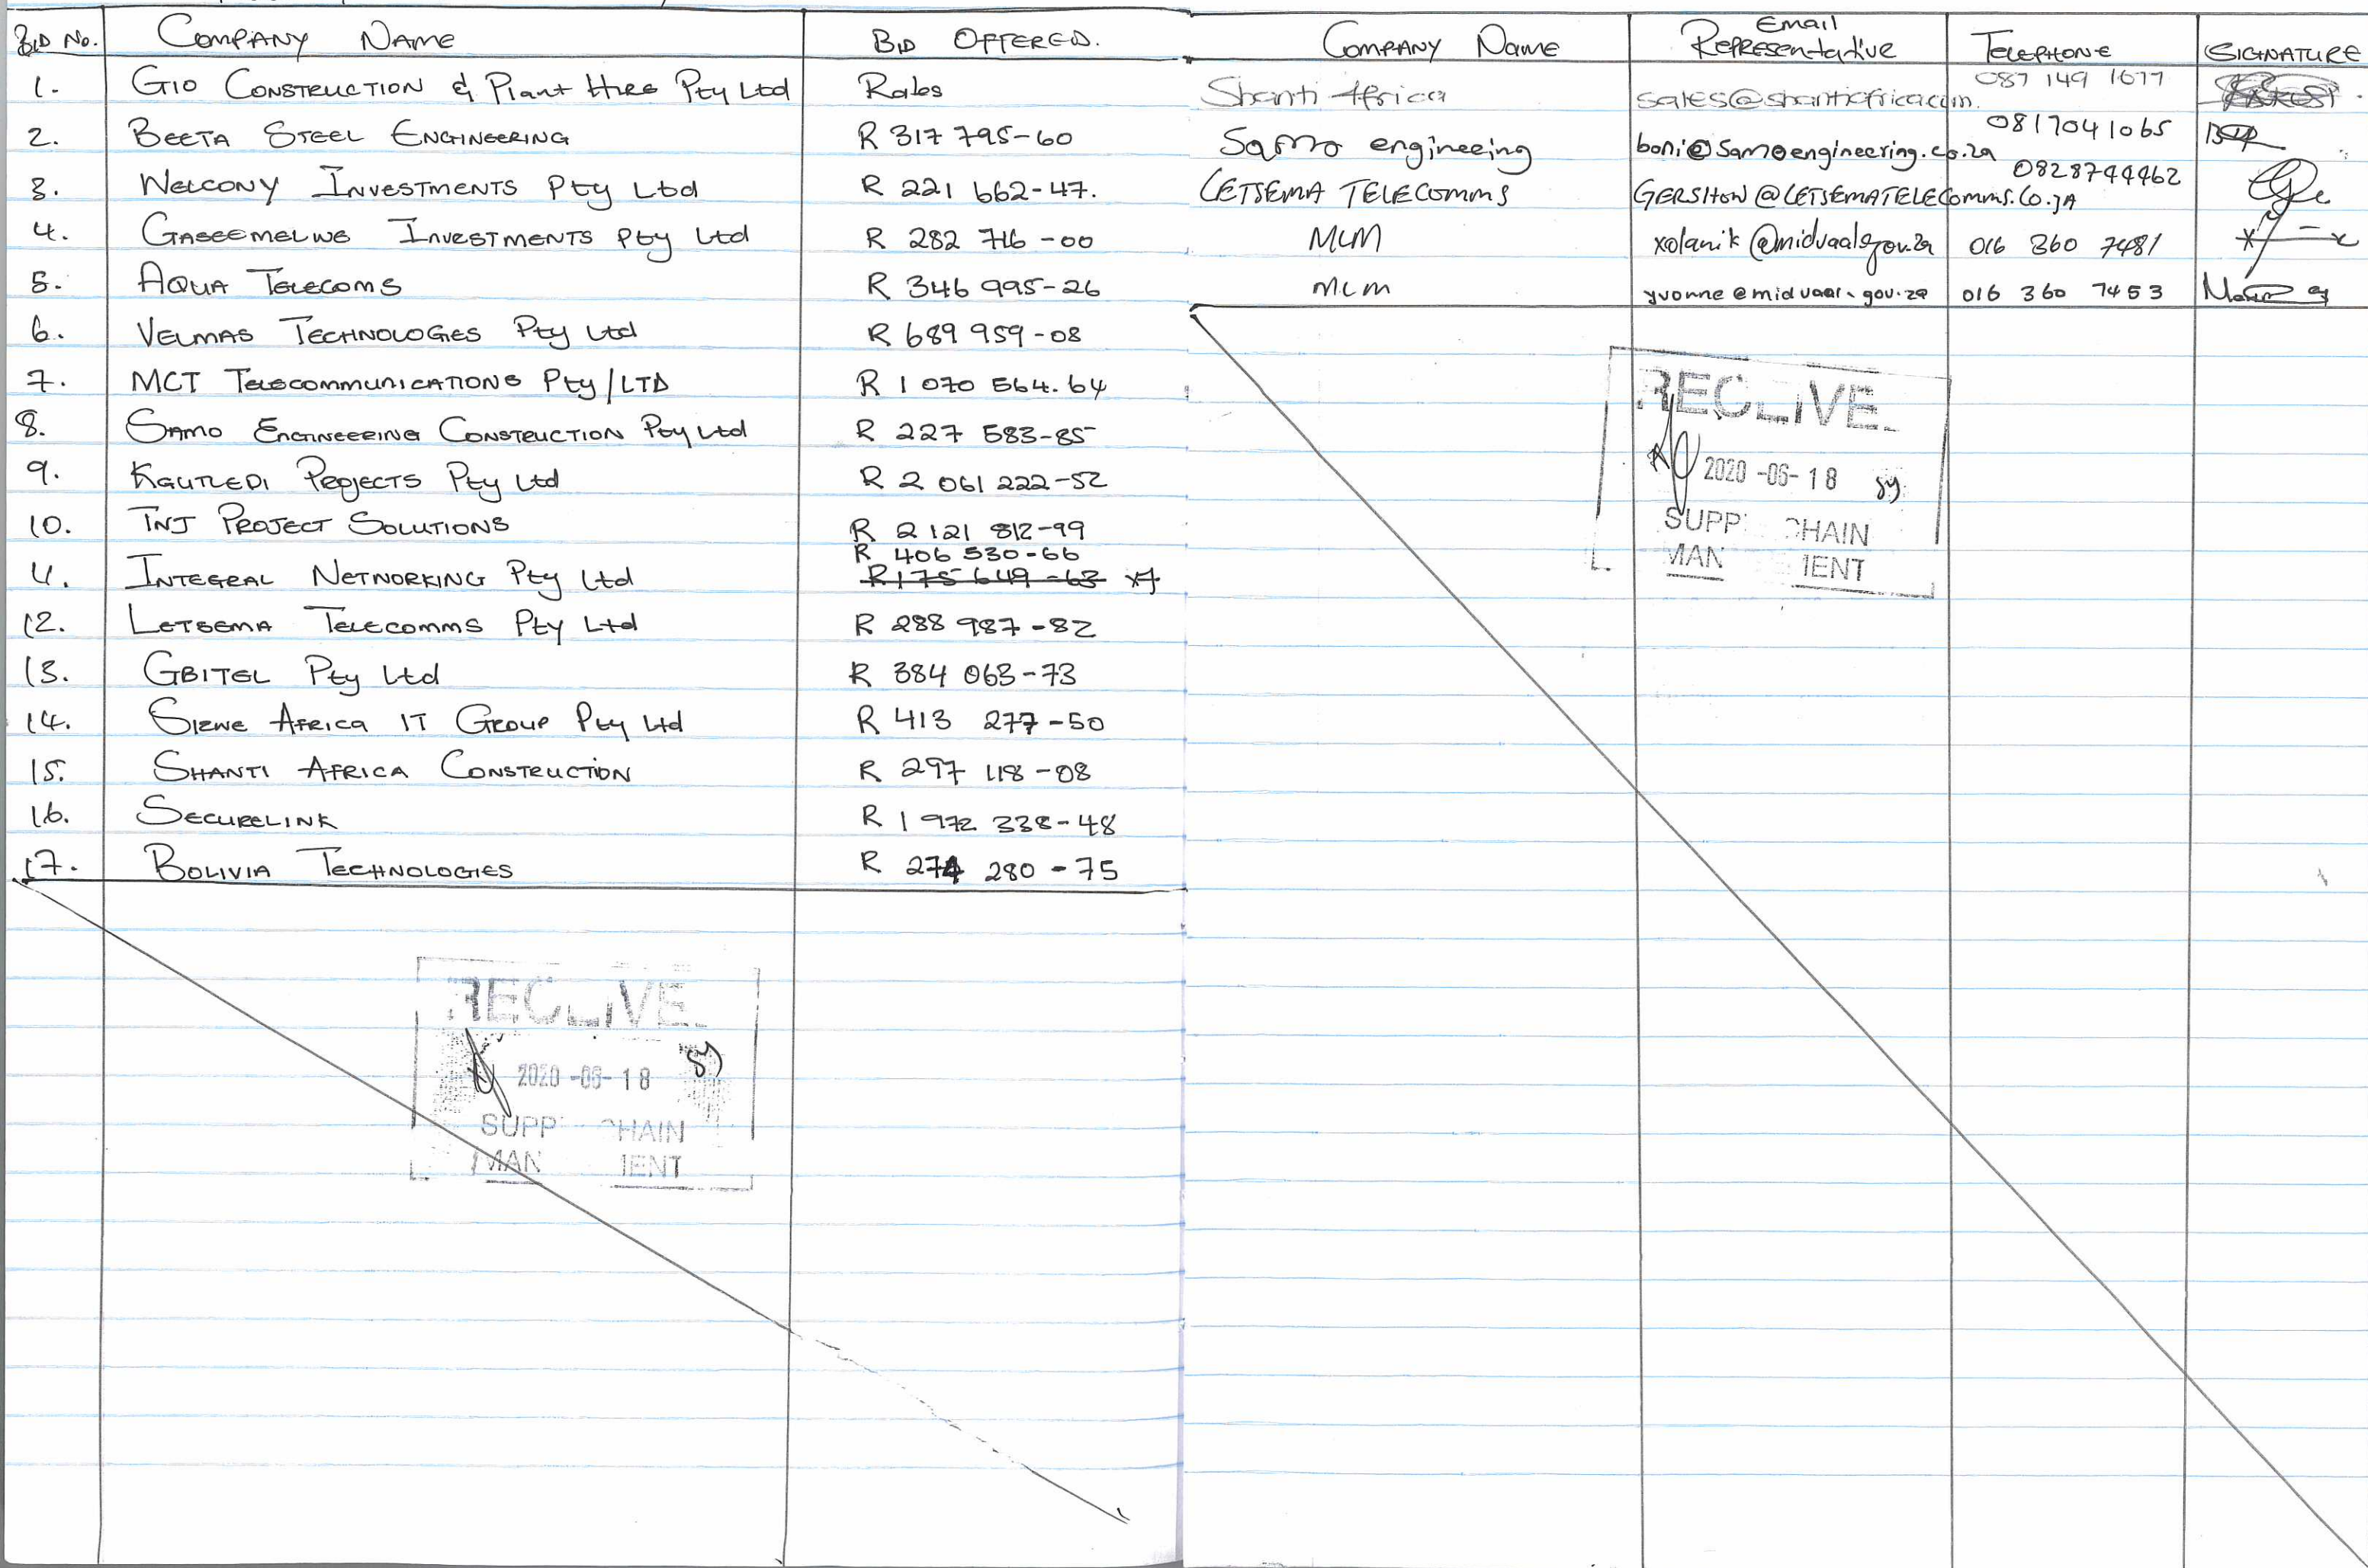 BID No. COMPANY NAME BID OFFERED.
1. GIO CONSTRUCTION & Plant HIRE Pty Ltd Rates
2. BEETA STEEL ENGINEERING R 317 795-60
3. WELCONY INVESTMENTS Pty Ltd R 221 662-47.
4. GASEEMELWE INVESTMENTS Pty Ltd R 282 716-00
5. AQUA TELECOMS R 346 995-26
6. VELMAS TECHNOLOGIES Pty Ltd R 689 959-08
7. MCT TELECOMMUNICATIONS Pty/LTD R 1 070 564.64
8. SAMO ENGINEERING CONSTRUCTION Pty Ltd R 227 583-85
9. KGUTLEDI PROJECTS Pty Ltd R 2 061 222-52
10. TNJ PROJECT SOLUTIONS R 2 121 812-99
R 406 530-66
11. INTEGRAL NETWORKING Pty Ltd R 175 649-63
12. LETSEMA TELECOMMS Pty Ltd R 288 987-82
13. GBITEL Pty Ltd R 384 063-73
14. SIZWE AFRICA IT GROUP Pty Ltd R 413 277-50
15. SHANTI AFRICA CONSTRUCTION R 297 118-08
16. SECURELINK R 1 972 338-48
17. BOLIVIA TECHNOLOGIES R 274 280-75
2020-06-18
SUPP HAIN
MAN IENT
COMPANY Name Email Representative TELEPHONE SIGNATURE
Shanti Africa sales@shantiafrica.com. 087 149 1677
Samo engineeing boni@samoengineering.co.za 0817041065
LETSEMA TELECOMMS GERSHON@LETSEMATELECOMMS.CO.ZA 0828744462
MLM xolanik@midvaal.gov.za 016 360 7481
MLM yvonne@midvaal.gov.za 016 360 7453
2020-06-18
SUPP HAIN
MAN IENT